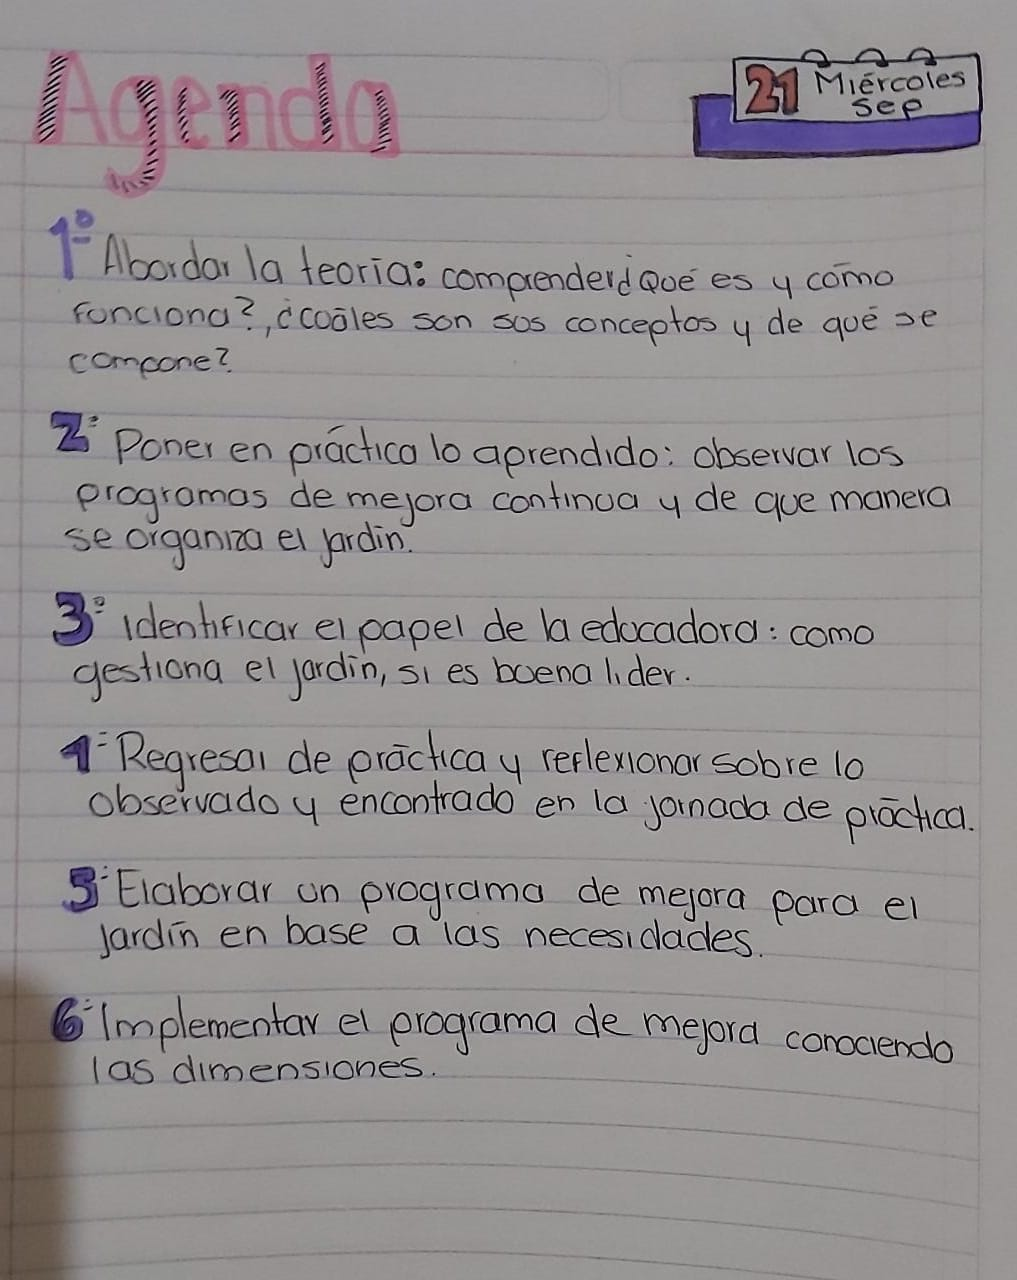 Agenda
21 Miércoles
Sep
1º Abordar la teoría: comprender ¿Qué es y cómo
funciona?, ¿cuáles son sus conceptos y de qué se
compone?
2º Poner en práctica lo aprendido: observar los
programas de mejora continua y de que manera
se organiza el jardín.
3º Identificar el papel de la educadora: como
gestiona el jardín, si es buena lider.
4º Regresar de práctica y reflexionar sobre lo
observado y encontrado en la jornada de práctica.
5º Elaborar un programa de mejora para el
jardín en base a las necesidades.
6º Implementar el programa de mejora conociendo
las dimensiones.